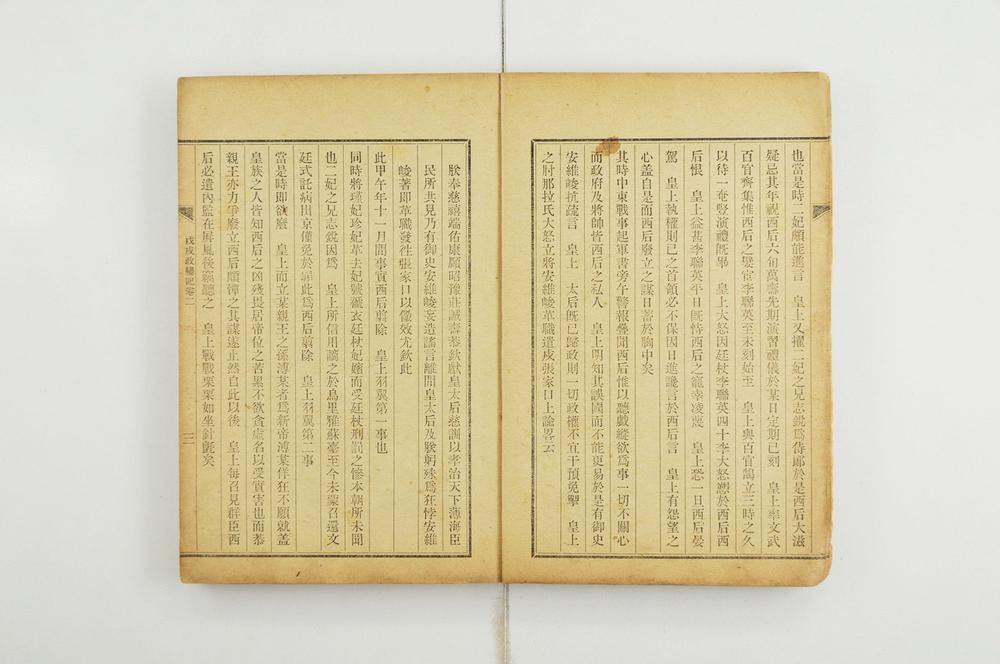 也當是時二妃頗能進言　皇上又擢二妃之兄志銳爲侍郎於是西后大滋
疑忌其年祝西后六旬萬壽先期演習禮儀於某日定期已刻　皇上率文武
百官齊集惟西后之嬖宦李聯英至未刻始至　皇上與百官鵠立三時之久
以待一奄豎演禮旣畢　皇上大怒因廷杖李聯英四十李大怒愬於西后西
后恨　皇上益甚李聯英平日旣恃西后之寵幸凌蔑　皇上恐一旦西后晏
駕　皇上執權則已之首領必不保因日進讒言於西后言　皇上有怨望之
心蓋自是而西后廢立之謀日蓄於胸中矣
其時中東戰事起軍書旁午警報疊聞西后惟以聽戲縱欲爲事一切不關心
而政府及將帥皆西后之私人　皇上明知其誤國而不能更易於是有御史
安維峻抗疏言　皇上　太后旣已歸政則一切政權不宜干預免掣　皇上
之肘那拉氏大怒立將安維峻革職遣戍張家口上諭畧云
朕奉慈禧端佑康頤昭豫莊誠壽恭欽獻皇太后慈訓以孝治天下薄海臣
民所共見乃有御史安維峻妄造謠言離間皇太后及朕躬殊爲狂悖安維
峻著卽革職發往張家口以儆效尤欽此
此甲午年十一月間事實西后翦除　皇上羽翼第一事也
同時將瑾妃珍妃革去妃號褫衣廷杖妃嬪而受廷杖刑罰之慘本朝所未聞
也二妃之兄志銳因爲　皇上所信用謫之於烏里雅蘇臺至今未蒙召還文
廷式託病出京僅免於罪此爲西后翦除　皇上羽翼第二事
當是時卽欲廢　皇上而立某親王之孫溥某者爲新帝溥某佯狂不願就蓋
皇族之人皆知西后之凶殘畏居帝位之苦累不欲貪虛名以受實害也而恭
親王亦力爭廢立西后頗憚之其謀遂止然自此以後　皇上每召見群臣西
后必遣內監在屏風後竊聽之　皇上戰戰栗栗如坐針氈矣
戊戌政變記卷二
二